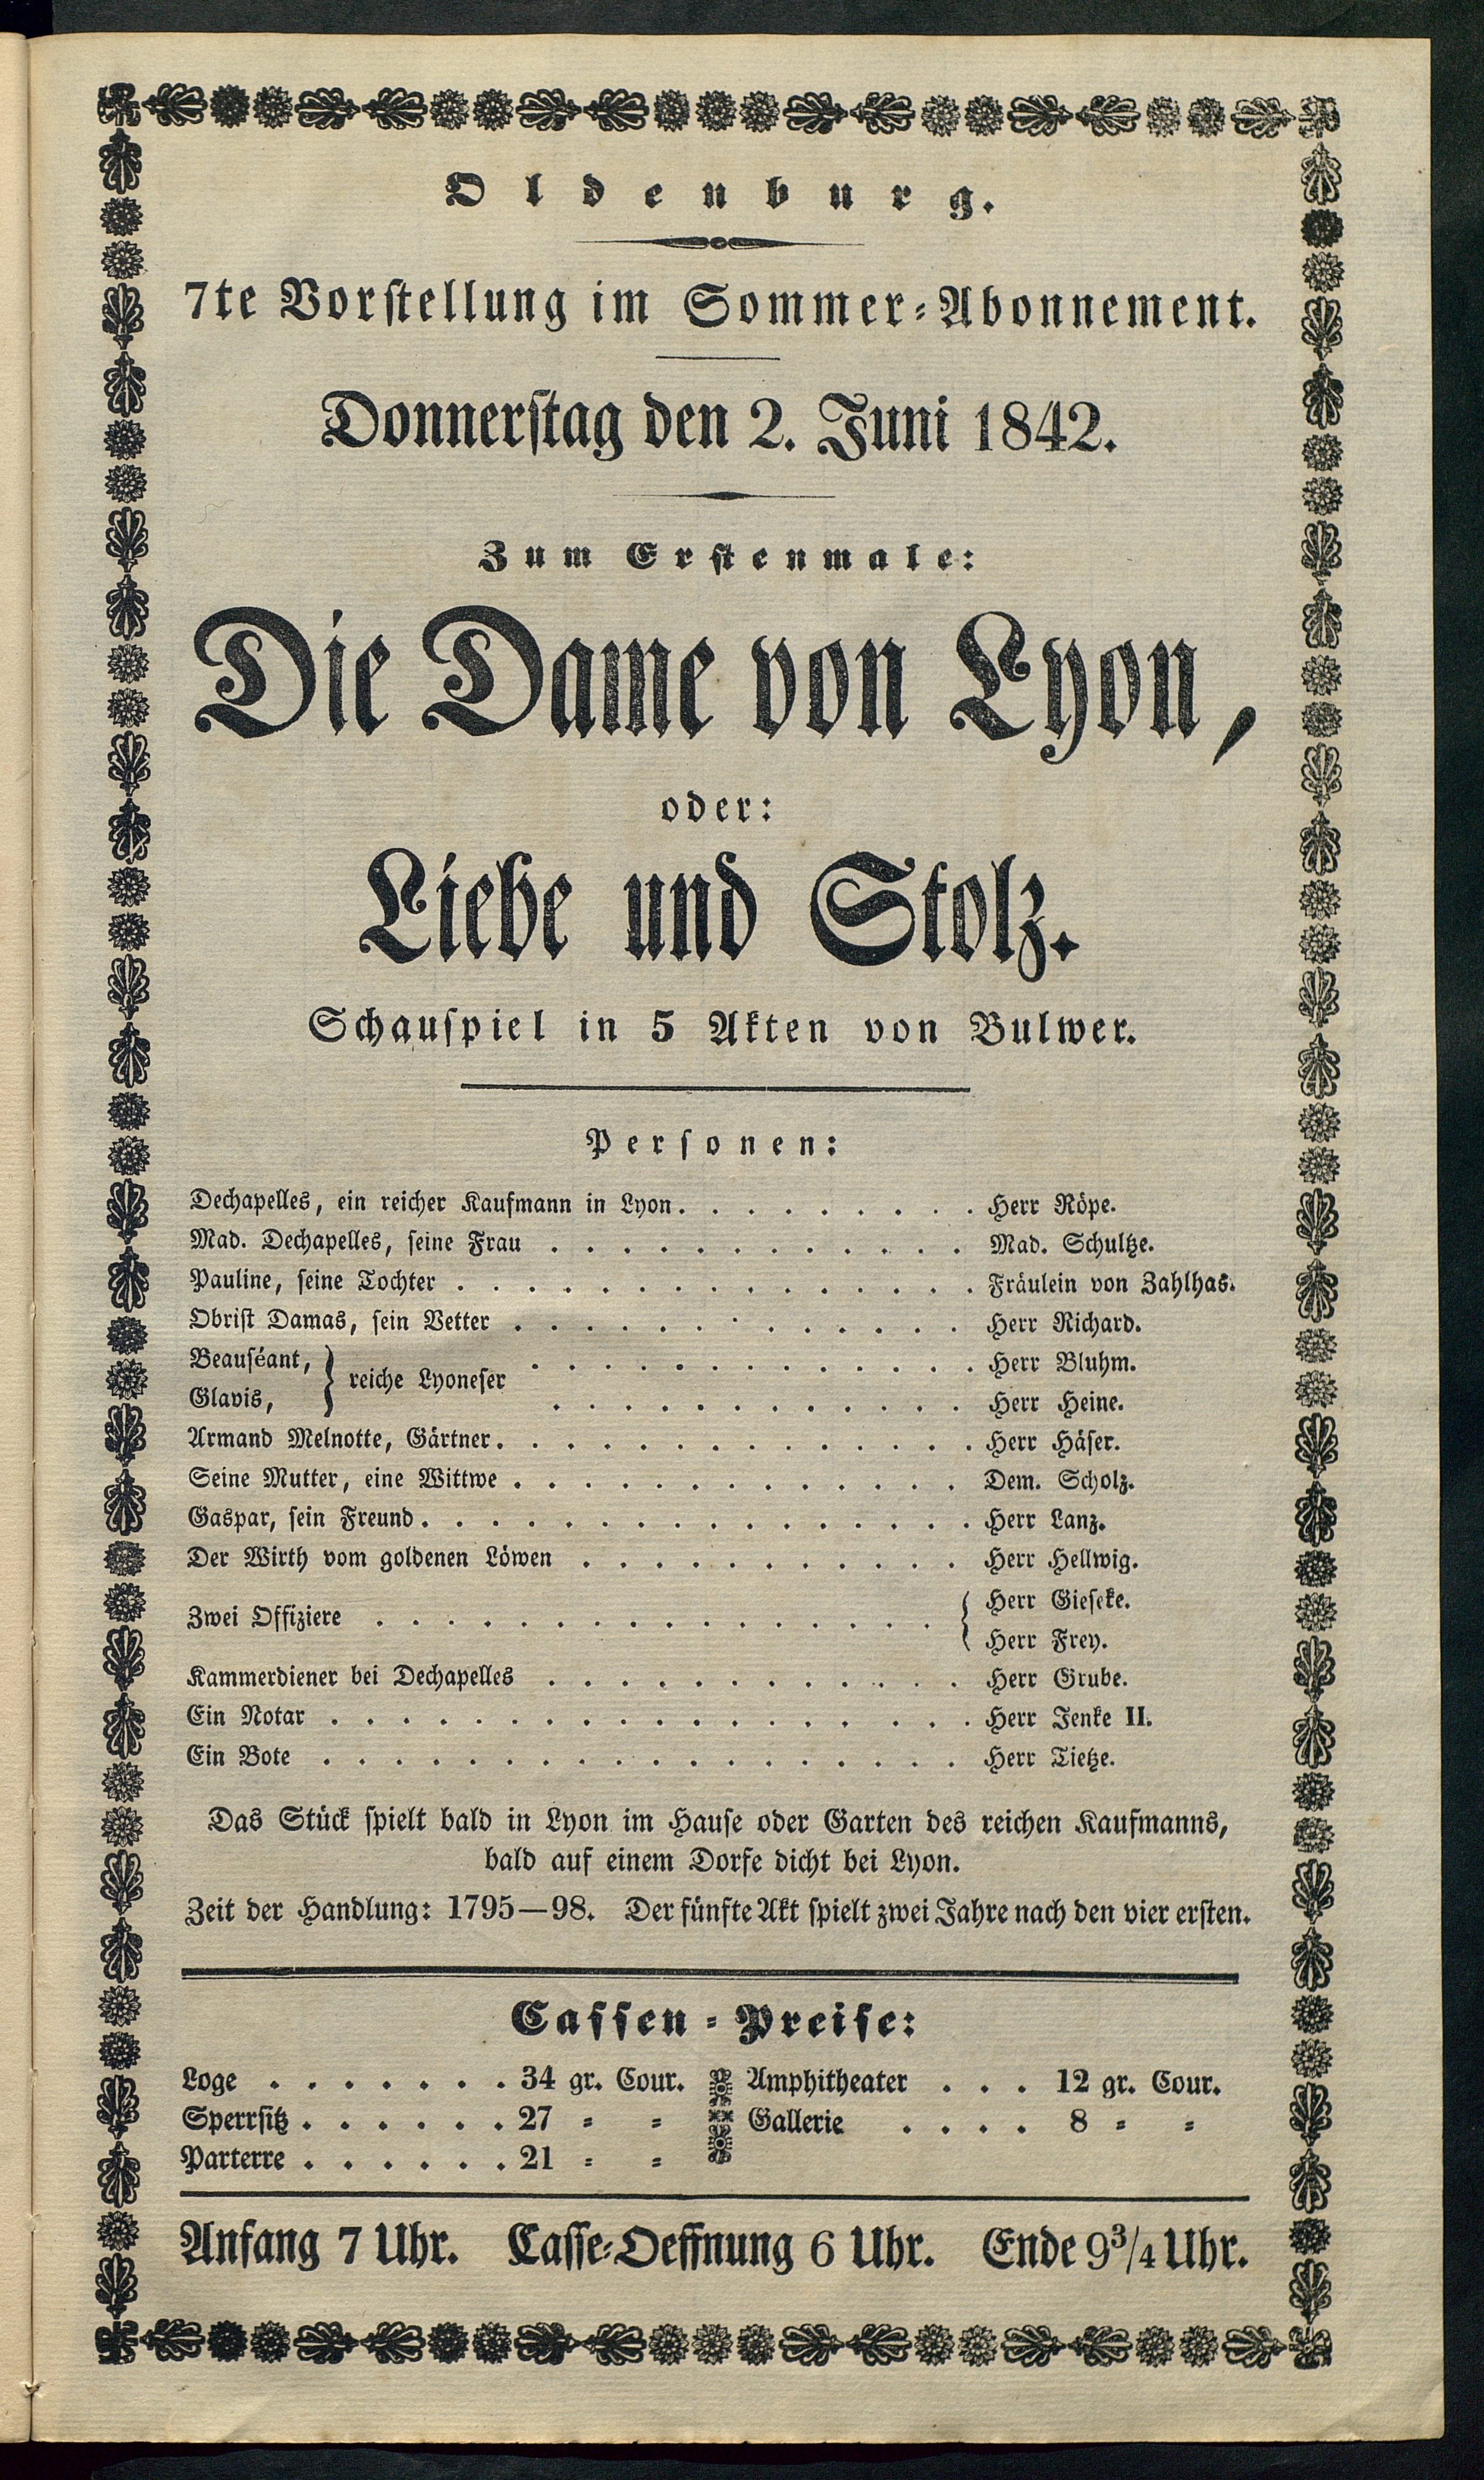 Oldenburg.
7te Vorstellung im Sommer-Abonnement.
Donnerstag den 2. Juni 1842.
Zum Erstenmale:
Die Dame von Lyon,
oder:
Liebe und Stolz.
Schauspiel in 5 Akten von Bulwer.
Personen:
Dechapelles, ein reicher Kaufmann in Lyon. . . . . . . . . Herr Röpe.
Mad. Dechapelles, seine Frau . . . . . . . . . . . . Mad. Schultze.
Pauline, seine Tochter . . . . . . . . . . . . . . . Fräulein von Zahlhas.
Obrist Damas, sein Vetter . . . . . . . . . . . . . Herr Richard.
Beauséant, } reiche Lyoneser . . . . . . . . . . . . . Herr Bluhm.
Glavis, . . . . . . . . . . . . Herr Heine.
Armand Melnotte, Gärtner. . . . . . . . . . . . . . Herr Häser.
Seine Mutter, eine Wittwe . . . . . . . . . . . . . Dem. Scholz.
Gaspar, sein Freund. . . . . . . . . . . . . . . . Herr Lanz.
Der Wirth vom goldenen Löwen . . . . . . . . . . . Herr Hellwig.
Zwei Offiziere . . . . . . . . . . . . . . . . { Herr Gieseke.
Herr Frey.
Kammerdiener bei Dechapelles . . . . . . . . . . . . Herr Grube.
Ein Notar . . . . . . . . . . . . . . . . . . Herr Jenke II.
Ein Bote . . . . . . . . . . . . . . . . . . Herr Tietze.
Das Stück spielt bald in Lyon im Hause oder Garten des reichen Kaufmanns,
bald auf einem Dorfe dicht bei Lyon.
Zeit der Handlung: 1795—98. Der fünfte Akt spielt zwei Jahre nach den vier ersten.
Cassen-Preise:
Loge . . . . . . . 34 gr. Cour. Amphitheater . . . 12 gr. Cour.
Sperrsitz . . . . . . 27 = = Gallerie . . . . 8 = =
Parterre . . . . . . 21 = =
Anfang 7 Uhr. Casse-Oeffnung 6 Uhr. Ende 9 3/4 Uhr.